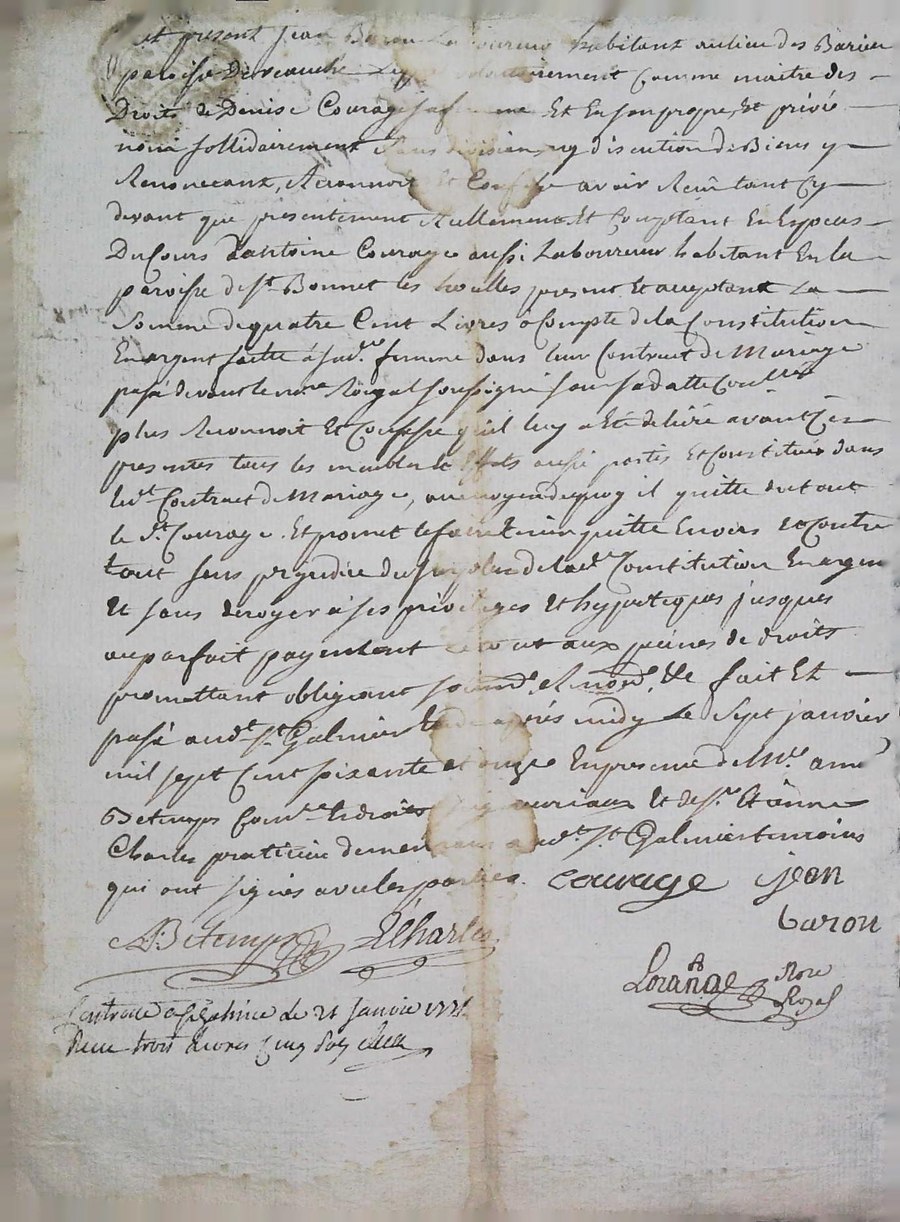 est present Jean Baron Laboureur habitant au lieu des Barien
paroisse De veauche Lequel volontairement Comme maitre des
Droits de Denise Courage sa femme Et En son propre, Et privé
nom sollidairement sans division, ny discution de Biens y
Renonceant, Reconnoit Et Confesse avoir Reçu tant Cy
devant que presentement Réellement Et Comptant En Especes
Du Cours d'antoine Courage aussi Laboureur habitant En la
paroisse de St. Bonnet les houlles present Et aceptant La
Somme de quatre Cent Livres à Compte de la Constitution
En argent faitte à sad.e femme dans leur Contract de Mariage
passé devant le no.re Royal soussigné sous sa datte
plus Reconnoit Et Confesse qu'il luy a Eté delivré avant Ces
presentes tous les meubles Et Effets aussi portés Et Constitués dans
led.t Contract de Mariage, au moyen de quoy il quitte du tout
le d.t Courage. Et promet le faire tenir quitte Envers Et Contre
tout sans prejudice du surplus de lad.e Constitution En argent
Et sans deroger à ses privileges Et hypoteques jusques
au parfait payement le tout aux peines de droits
promettant obligeant soumd. Renonc.d. &e fait Et
passé aud.t St. Galmier Etude après midy Le Sept janvier
mil sept Cent soixante et onze En presence de M.re amé
Betemps Com.re Es droits seigneuriaux Et de Sr. Etienne
Charles praticien demeurant aud.t St. Galmier temoins
qui ont signés avec les parties. Courage jean
baron
ABetemps ECharles
Lorange Nore
Royal
Controllé a St galmier Le 21 Janvier 1771
Recu trois Livres Cinq Sols